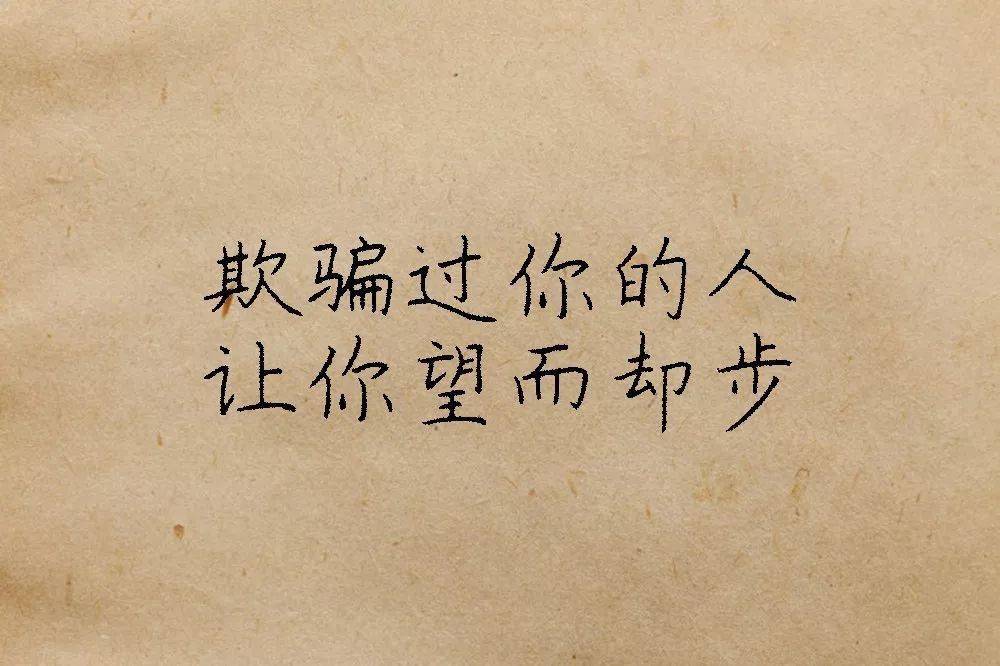 欺骗过你的人
让你望而却步